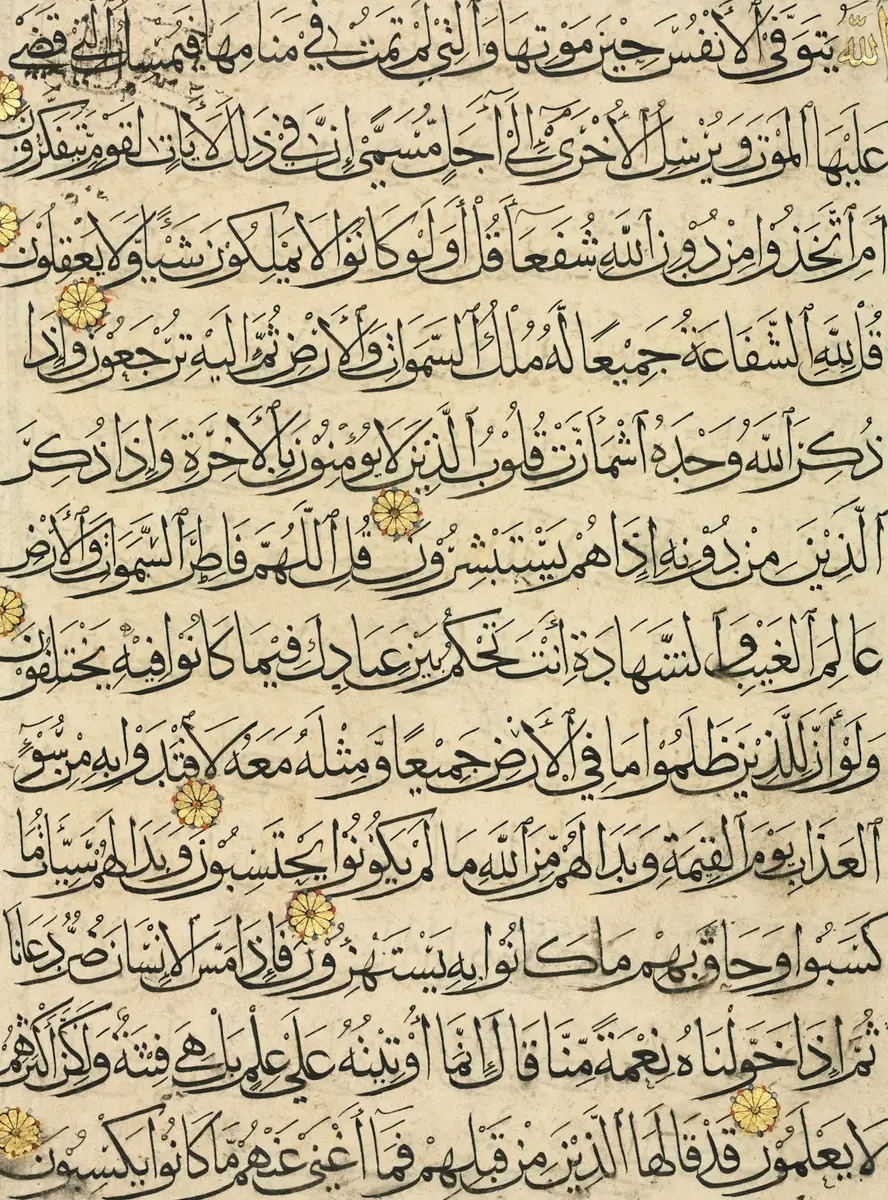 ٱللَّهُ يَتَوَفَّى ٱلْأَنْفُسَ حِينَ مَوْتِهَا وَٱلَّتِى لَمْ تَمُتْ فِي مَنَامِهَا فَيُمْسِكُ ٱلَّتِي قَضَى
عَلَيْهَا ٱلْمَوْتَ وَيُرْسِلُ ٱلْأُخْرَىٰٓ إِلَىٰٓ أَجَلٍ مُّسَمًّى إِنَّ فِي ذَٰلِكَ لَآيَاتٍ لِقَوْمٍ يَتَفَكَّرُونَ
أَمِ ٱتَّخَذُوا مِنْ دُونِ ٱللَّهِ شُفَعَآءَ قُلْ أَوَلَوْ كَانُوا لَا يَمْلِكُونَ شَيْـًٔا وَّلَا يَعْقِلُونَ
قُلْ لِلَّهِ ٱلشَّفَاعَةُ جَمِيْعًا لَّهُ مُلْكُ ٱلسَّمٰوَاتِ وَٱلْأَرْضِ ثُمَّ إِلَيْهِ تُرْجَعُونَ وَإِذَا
ذُكِرَ ٱللَّهُ وَحْدَهُ ٱشْمَأَزَّتْ قُلُوبُ ٱلَّذِينَ لَا يُؤْمِنُوْنَ بِٱلْأَخِرَةِ وَإِذَا ذُكِرَ
ٱلَّذِيْنَ مِنْ دُوْنِهِ إِذَا هُمْ يَسْتَبْشِرُوْنَ قُلِ ٱللَّهُمَّ فَاطِرَ ٱلسَّمٰوَاتِ وَٱلْأَرْضِ
عَالِمَ ٱلْغَيْبِ وَٱلشَّهَادَةِ أَنْتَ تَحْكُمُ بَيْنَ عِبَادِكَ فِيْمَا كَانُوْا فِيْهِ يَخْتَلِفُوْنَ
وَلَوْ أَنَّ لِلَّذِيْنَ ظَلَمُوْا مَا فِي ٱلْأَرْضِ جَمِيْعًا وَّمِثْلَهُ مَعَهُ لَافْتَدَوْا بِهِ مِنْ سُوْٓءِ
ٱلْعَذَابِ يَوْمَ ٱلْقِيٰمَةِ وَبَدَا لَهُمْ مِّنَ ٱللَّهِ مَا لَمْ يَكُوْنُوْا يَحْتَسِبُوْنَ وَبَدَا لَهُمْ سَيِّـَٔاتُ مَا
كَسَبُوْا وَحَاقَ بِهِمْ مَا كَانُوْا بِهِ يَسْتَهْزِؤُنَ فَإِذَا مَسَّ الْإِنْسَانَ ضُرٌّ دَعَانَا
ثُمَّ إِذَا خَوَّلْنَاهُ نِعْمَةً مِّنَّا قَالَ إِنَّمَا أُوْتِيْتُهُ عَلَىٰ عِلْمٍ بَلْ هِيَ فِتْنَةٌ وَلٰكِنَّ أَكْثَرَهُمْ
لَا يَعْلَمُوْنَ قَدْ قَالَهَا ٱلَّذِيْنَ مِنْ قَبْلِهِمْ فَمَآ أَغْنَىٰ عَنْهُمْ مَّا كَانُوْا يَكْسِبُوْنَ